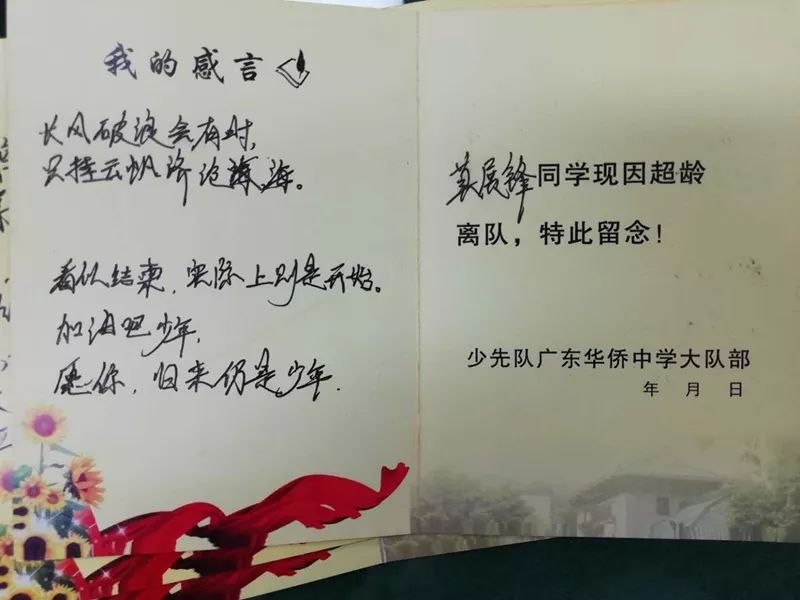 我的感言
长风破浪会有时，
只挂云帆济沧海。
看似结束，实际上则是开始。
加油吧少年，
愿你，归来仍是少年.
莫展锋同学现因超龄
离队，特此留念！
少先队广东华侨中学大队部
年 月 日